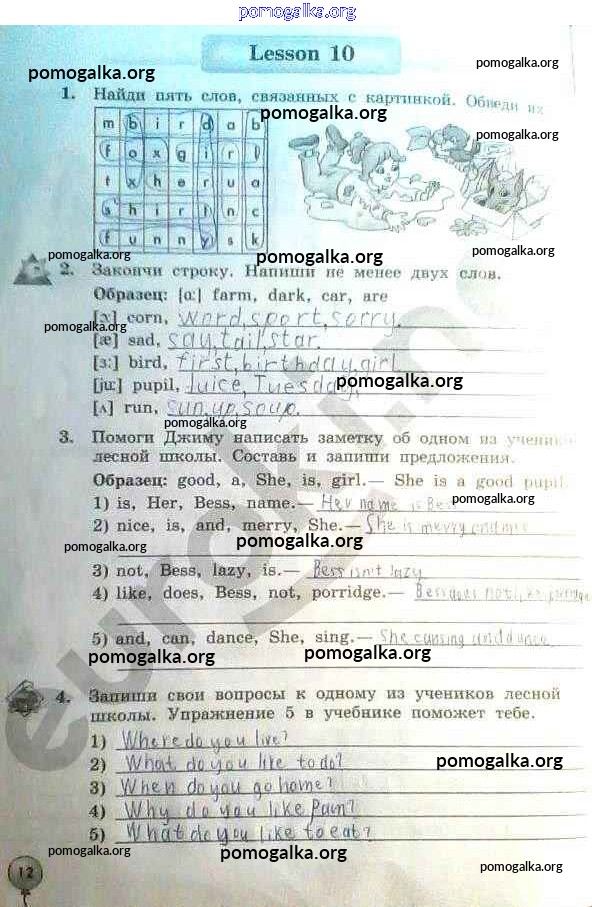 pomogalka.org
Lesson 10
pomogalka.org
pomogalka.org
1. Найди пять слов, связанных с картинкой. Обведи их
pomogalka.org
m b i r d a b
f o x g i r l
t x h e r u a
s h i r t n c
f u n n y s k
pomogalka.org
pomogalka.org
pomogalka.org
2. Закончи строку. Напиши не менее двух слов.
Образец: [ɑ:] farm, dark, car, are
[ɔ:] corn, word, sport, sorry.
pomogalka.org
[æ] sad, say, tail, star.
[ɜ:] bird, first, birthday, girl
[ju:] pupil, Juice, Tuesday,
pomogalka.org
[ʌ] run, sun, up, soup.
pomogalka.org
3. Помоги Джиму написать заметку об одном из учеников
лесной школы. Составь и запиши предложения.
Образец: good, a, She, is, girl.— She is a good pupil
1) is, Her, Bess, name.— Her name is Bess
pomogalka.org
2) nice, is, and, merry, She.— She is merry and nice
pomogalka.org
pomogalka.org
3) not, Bess, lazy, is.— Bess isn't lazy
4) like, does, Bess, not, porridge.— Bess does not like porridge
5) and, can, dance, She, sing.— She can sing and dance
pomogalka.org
pomogalka.org
4. Запиши свои вопросы к одному из учеников лесной
школы. Упражнение 5 в учебнике поможет тебе.
1) Where do you live?
2) What do you like to do?
pomogalka.org
3) When do you go home?
4) Why do you like
5) What do you like to eat?
pomogalka.org
pomogalka.org
pomogalka.org
12
euroki.no